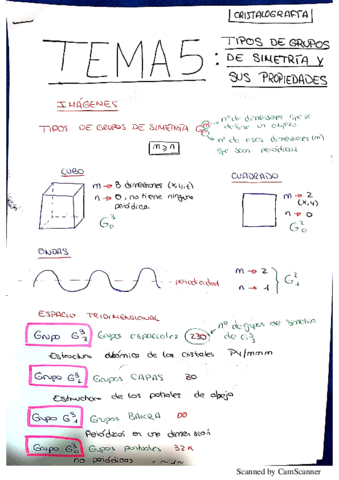 CRISTALOGRAFÍA
TEMA 5: TIPOS DE GRUPOS
DE SIMETRÍA Y
SUS PROPIEDADES
IMÁGENES
nº de dimensiones que se
define un objeto
TIPOS DE GRUPOS DE SIMETRÍA G
nº de esas dimensiones (m)
que son periódicas
m ≥ n
CUBO
m → 3 dimensiones
n → 0, no tiene ninguna
periódica
G³₀
CUADRADO
m → 2
(x,y)
n → 0
G²₀
ONDAS
periodicidad
m → 2
n → 1
G²₁
ESPACIO TRIDIMENSIONAL
Grupo G³₃ Grupos espaciales 230
nº de grupos de simetría
Estructura atómica de los cristales
Grupo G³₂ Grupos CAPAS 80
Estructura de los panales de abeja
Grupo G³₁ Grupos BARRA
Periódicos en una dimensión
Grupo G³₀ Grupos puntuales 32
no periódicos
Scanned by CamScanner